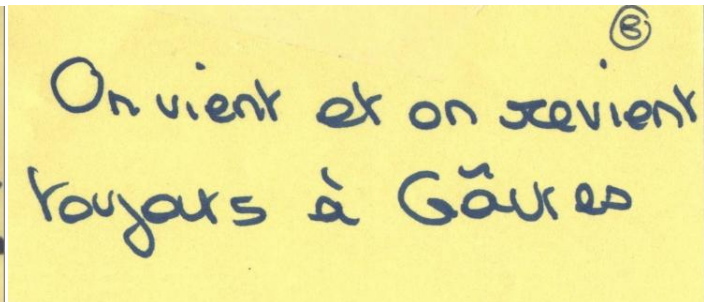 B
On vient et on revient
toujours à Gâvres